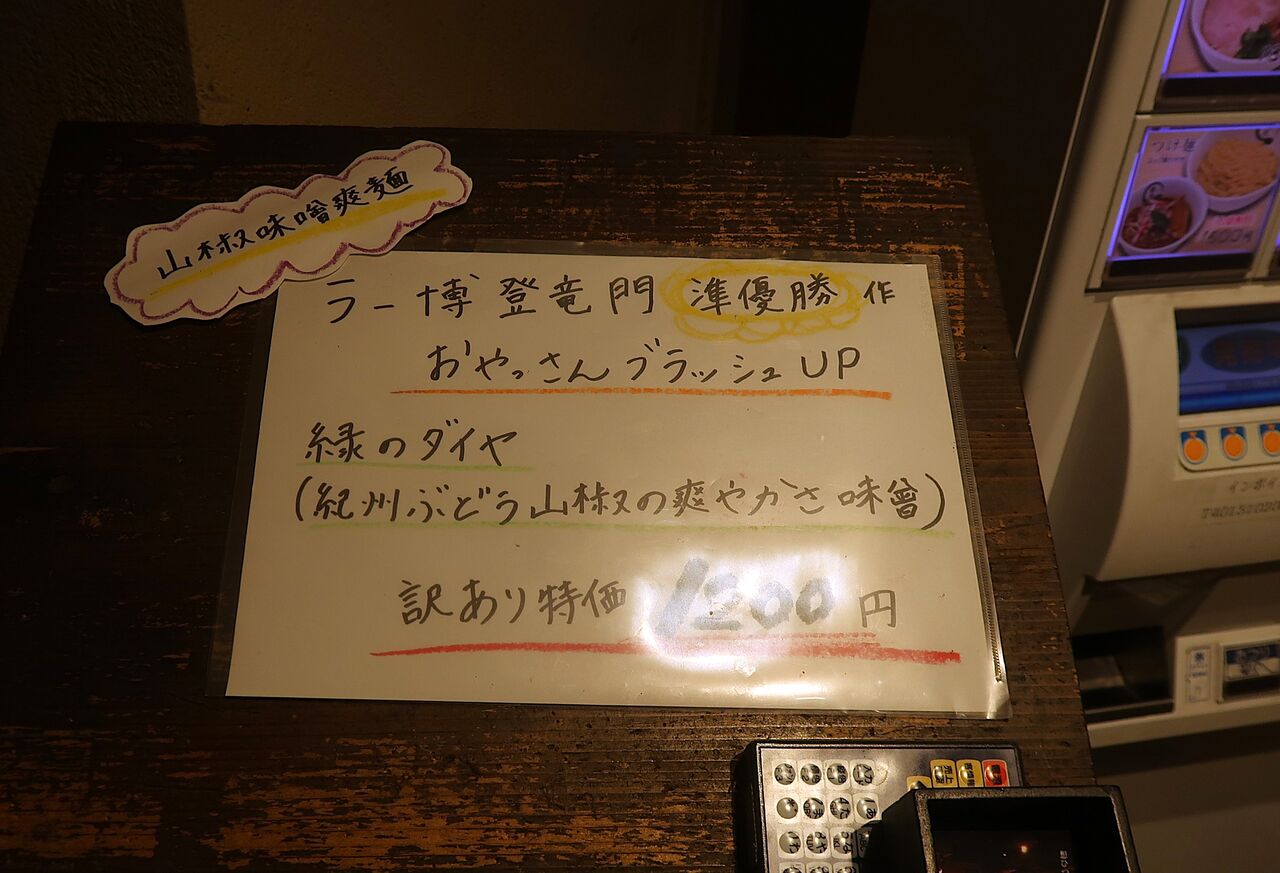 山椒味噌爽麺
ラー博登竜門 準優勝作
おやっさんブラッシュUP
緑のダイヤ
(紀州ぶどう山椒の爽やかさ味噌)
訳あり特価 1200円
つけ麺